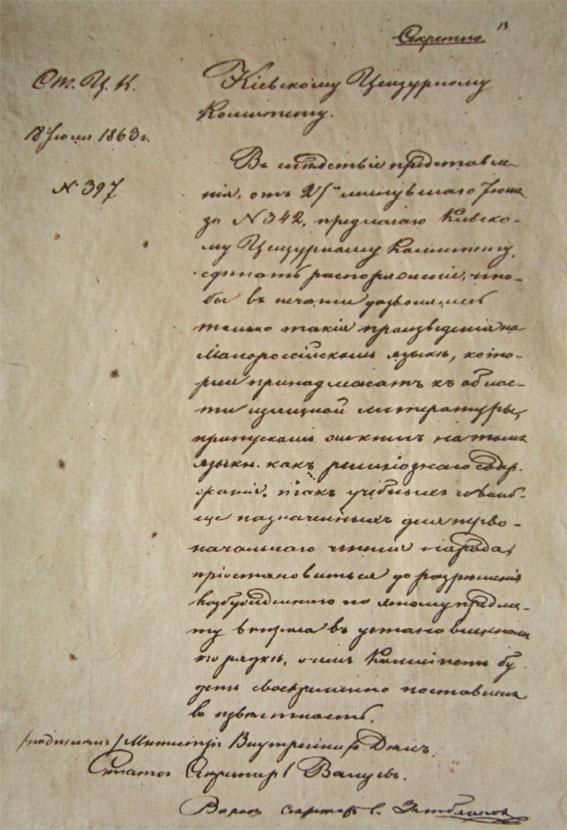 Секретно.
Ст. Ц. К.
Кіевскому Цензурному
Комитету.
18 Іюля 1863 г.
№ 397
Въ слѣдствіе представле-
нія, отъ 27го минувшаго Іюня
за № 342, предлагаю Кіевско-
му Цензурному Комитету,
сдѣлать распоряженіе, что-
бы въ печати дозволялись
только такія произведенія на
Малороссійскомъ языкѣ, кото-
рыя принадлежатъ къ облас-
ти изящной литературы;
пропускомъ же книгъ на томъ
языкѣ, какъ религіознаго содер-
жанія, такъ учебныхъ и вооб-
ще назначенныхъ для перво-
начальнаго чтенія народа,
пріостановиться до разрѣшенія
возбужденнаго по этому предме-
ту вопроса въ установленномъ
порядкѣ, о чемъ Комитетъ бу-
детъ своевременно поставленъ
въ извѣстность.
/подписалъ/ Министръ Внутреннихъ Дѣлъ,
Статсъ Секретарь Валуевъ.
секретарь